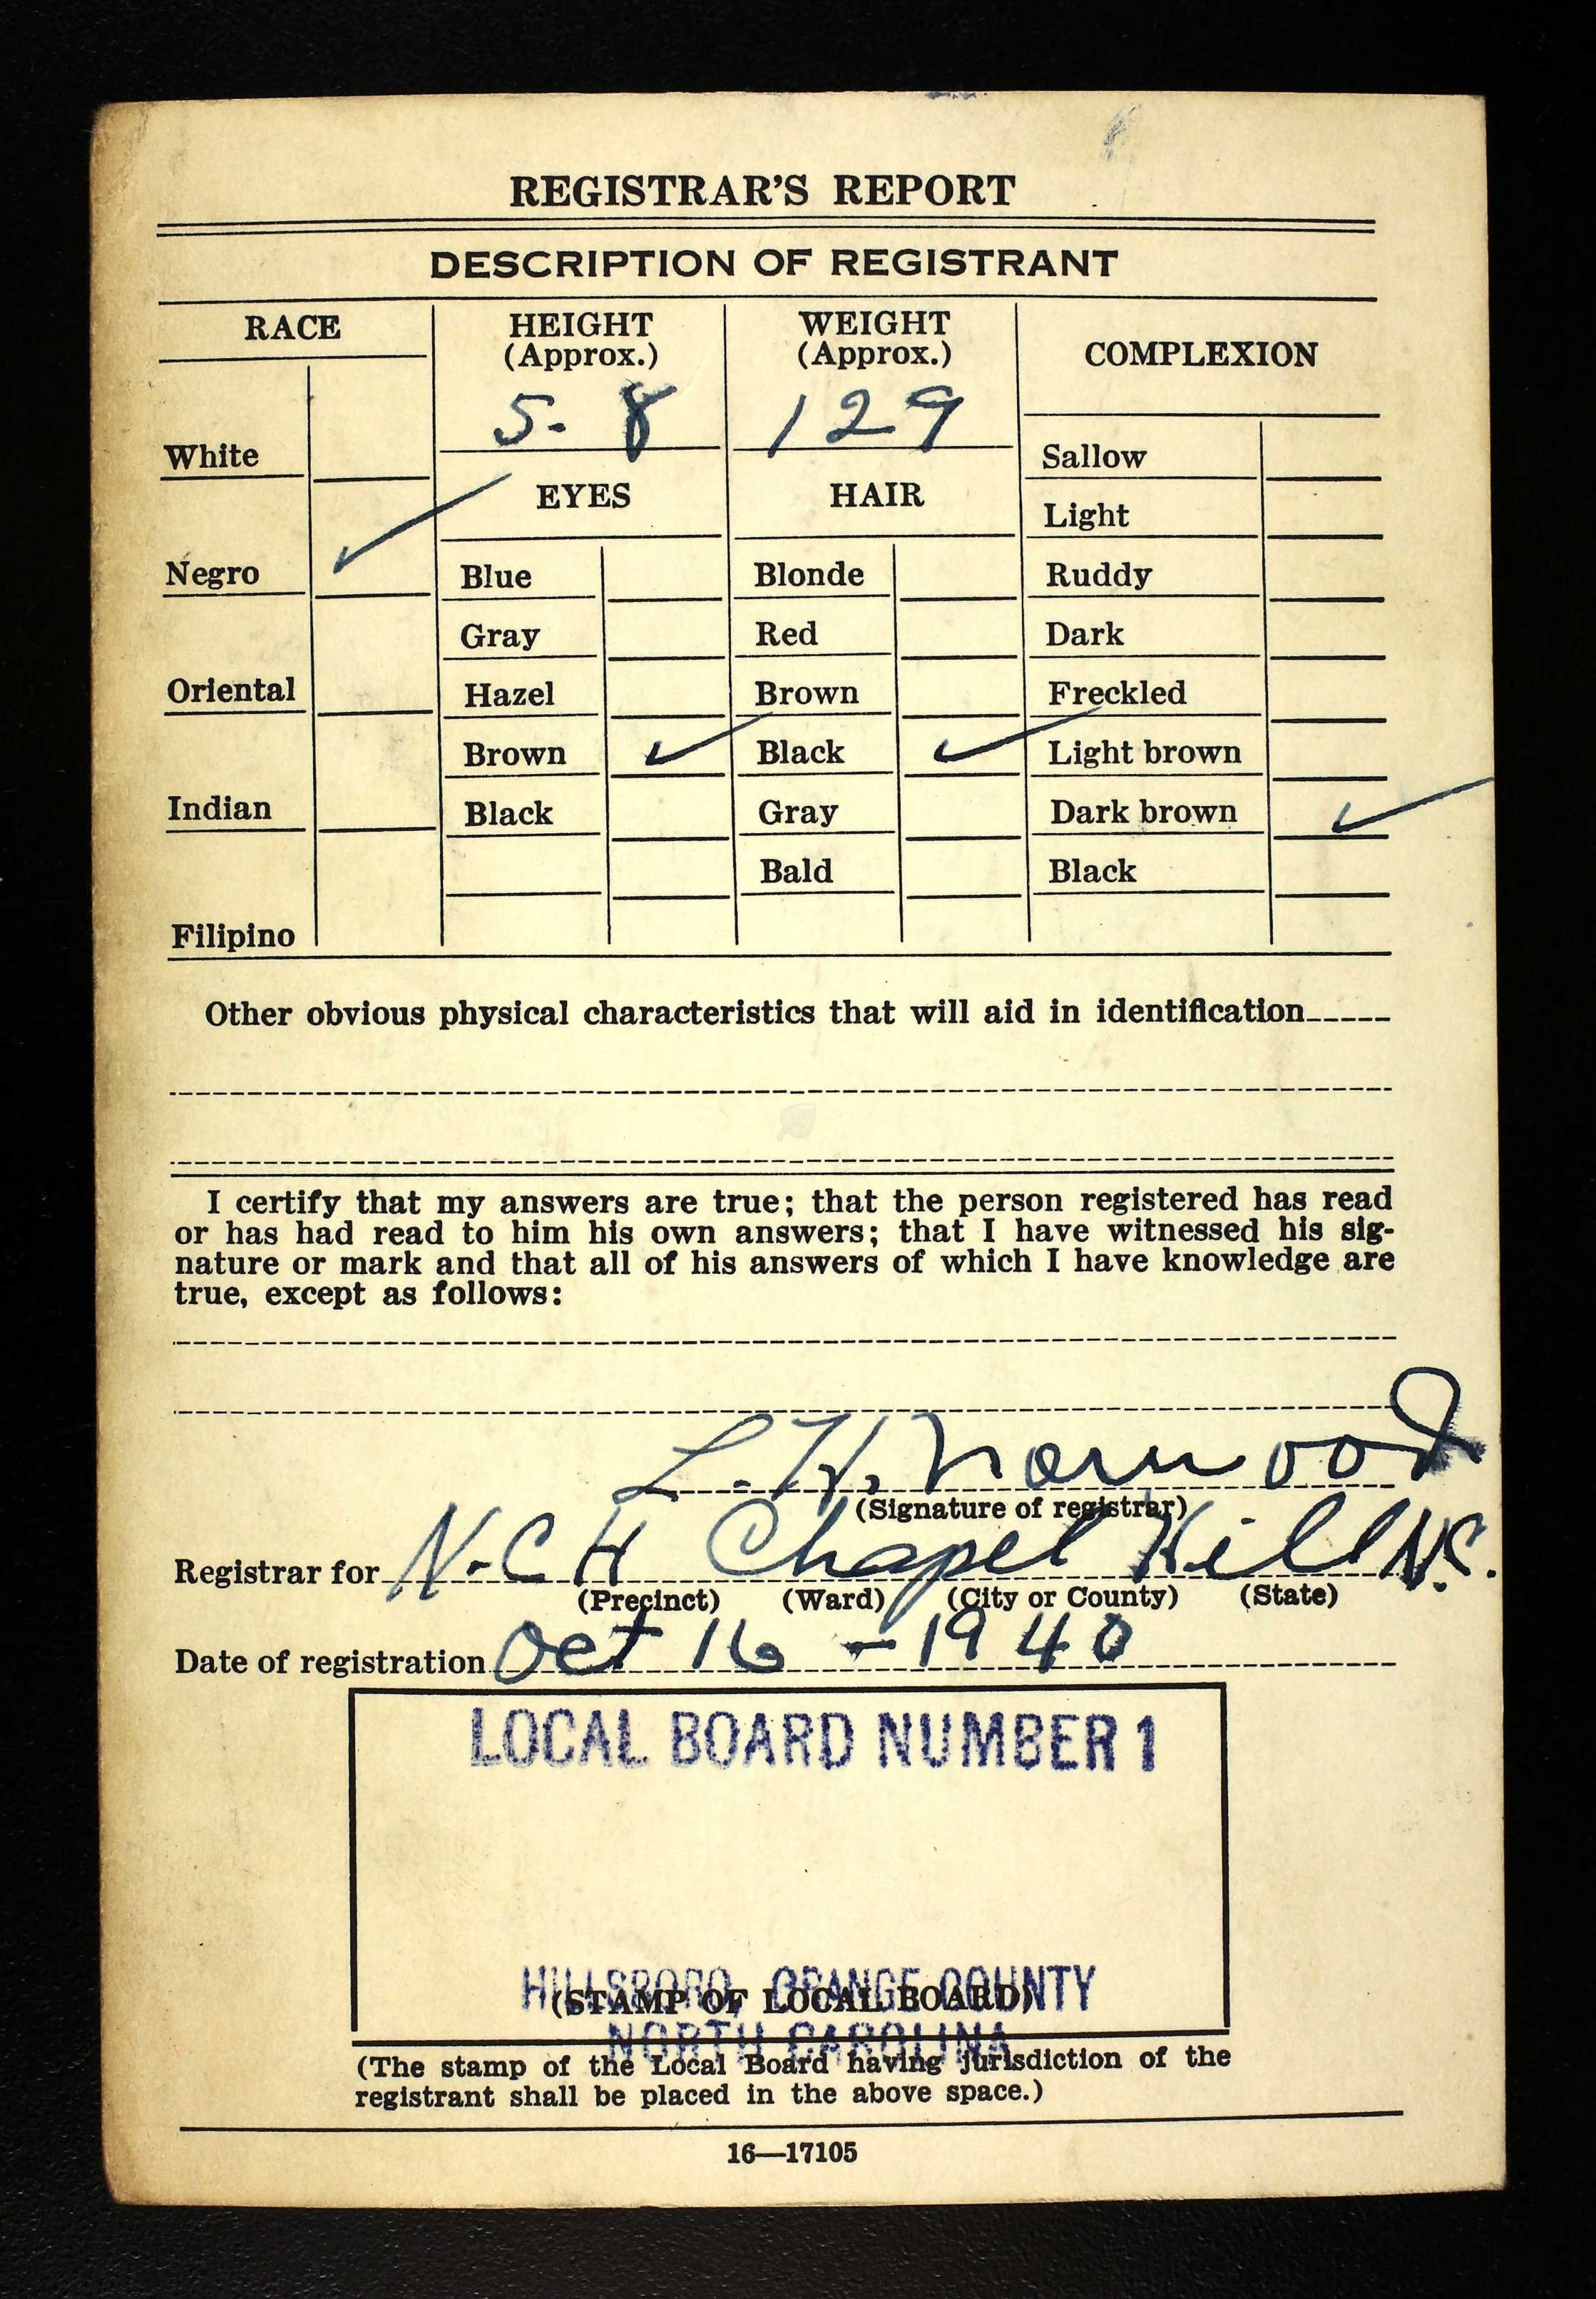 REGISTRAR'S REPORT
DESCRIPTION OF REGISTRANT
RACE
White
Negro ✓
Oriental
Indian
Filipino
HEIGHT
(Approx.)
5-8
EYES
Blue
Gray
Hazel
Brown ✓
Black
WEIGHT
(Approx.)
129
HAIR
Blonde
Red
Brown
Black ✓
Gray
Bald
COMPLEXION
Sallow
Light
Ruddy
Dark
Freckled
Light brown
Dark brown ✓
Black
Other obvious physical characteristics that will aid in identification
I certify that my answers are true; that the person registered has read
or has had read to him his own answers; that I have witnessed his sig-
nature or mark and that all of his answers of which I have knowledge are
true, except as follows:
L. H. Norwood
(Signature of registrar)
Registrar for N-C H Chapel Hill N.C.
(Precinct) (Ward) (City or County) (State)
Date of registration Oct 16 - 1940
LOCAL BOARD NUMBER 1
HILLSBORO, ORANGE COUNTY
(STAMP OF LOCAL BOARD)
NORTH CAROLINA
(The stamp of the Local Board having jurisdiction of the
registrant shall be placed in the above space.)
16—17105